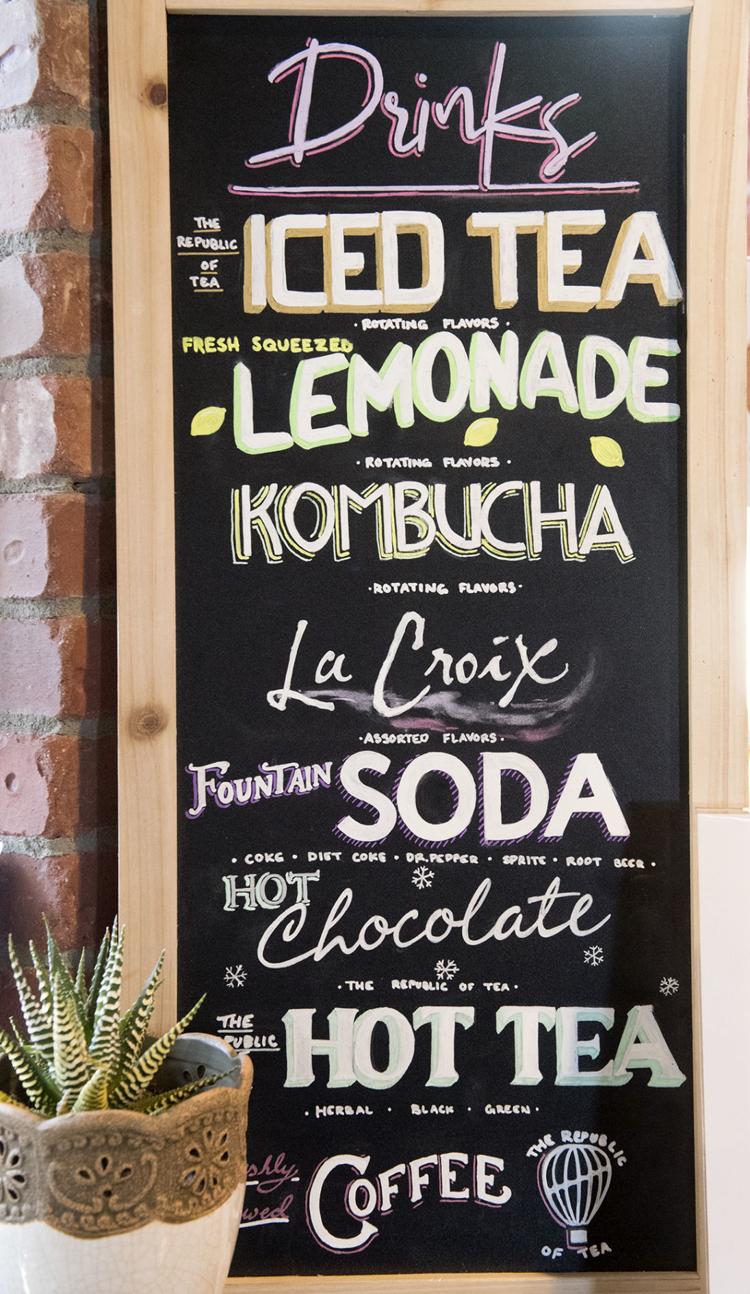 Drinks
THE
REPUBLIC
OF
TEA
ICED TEA
· ROTATING FLAVORS ·
FRESH SQUEEZED
LEMONADE
· ROTATING FLAVORS ·
KOMBUCHA
· ROTATING FLAVORS ·
La Croix
· ASSORTED FLAVORS ·
FOUNTAIN SODA
· COKE · DIET COKE · DR.PEPPER · SPRITE · ROOT BEER ·
HOT
Chocolate
· THE REPUBLIC OF TEA ·
THE
HOT TEA
· HERBAL · BLACK · GREEN ·
COFFEE
THE REPUBLIC
OF TEA